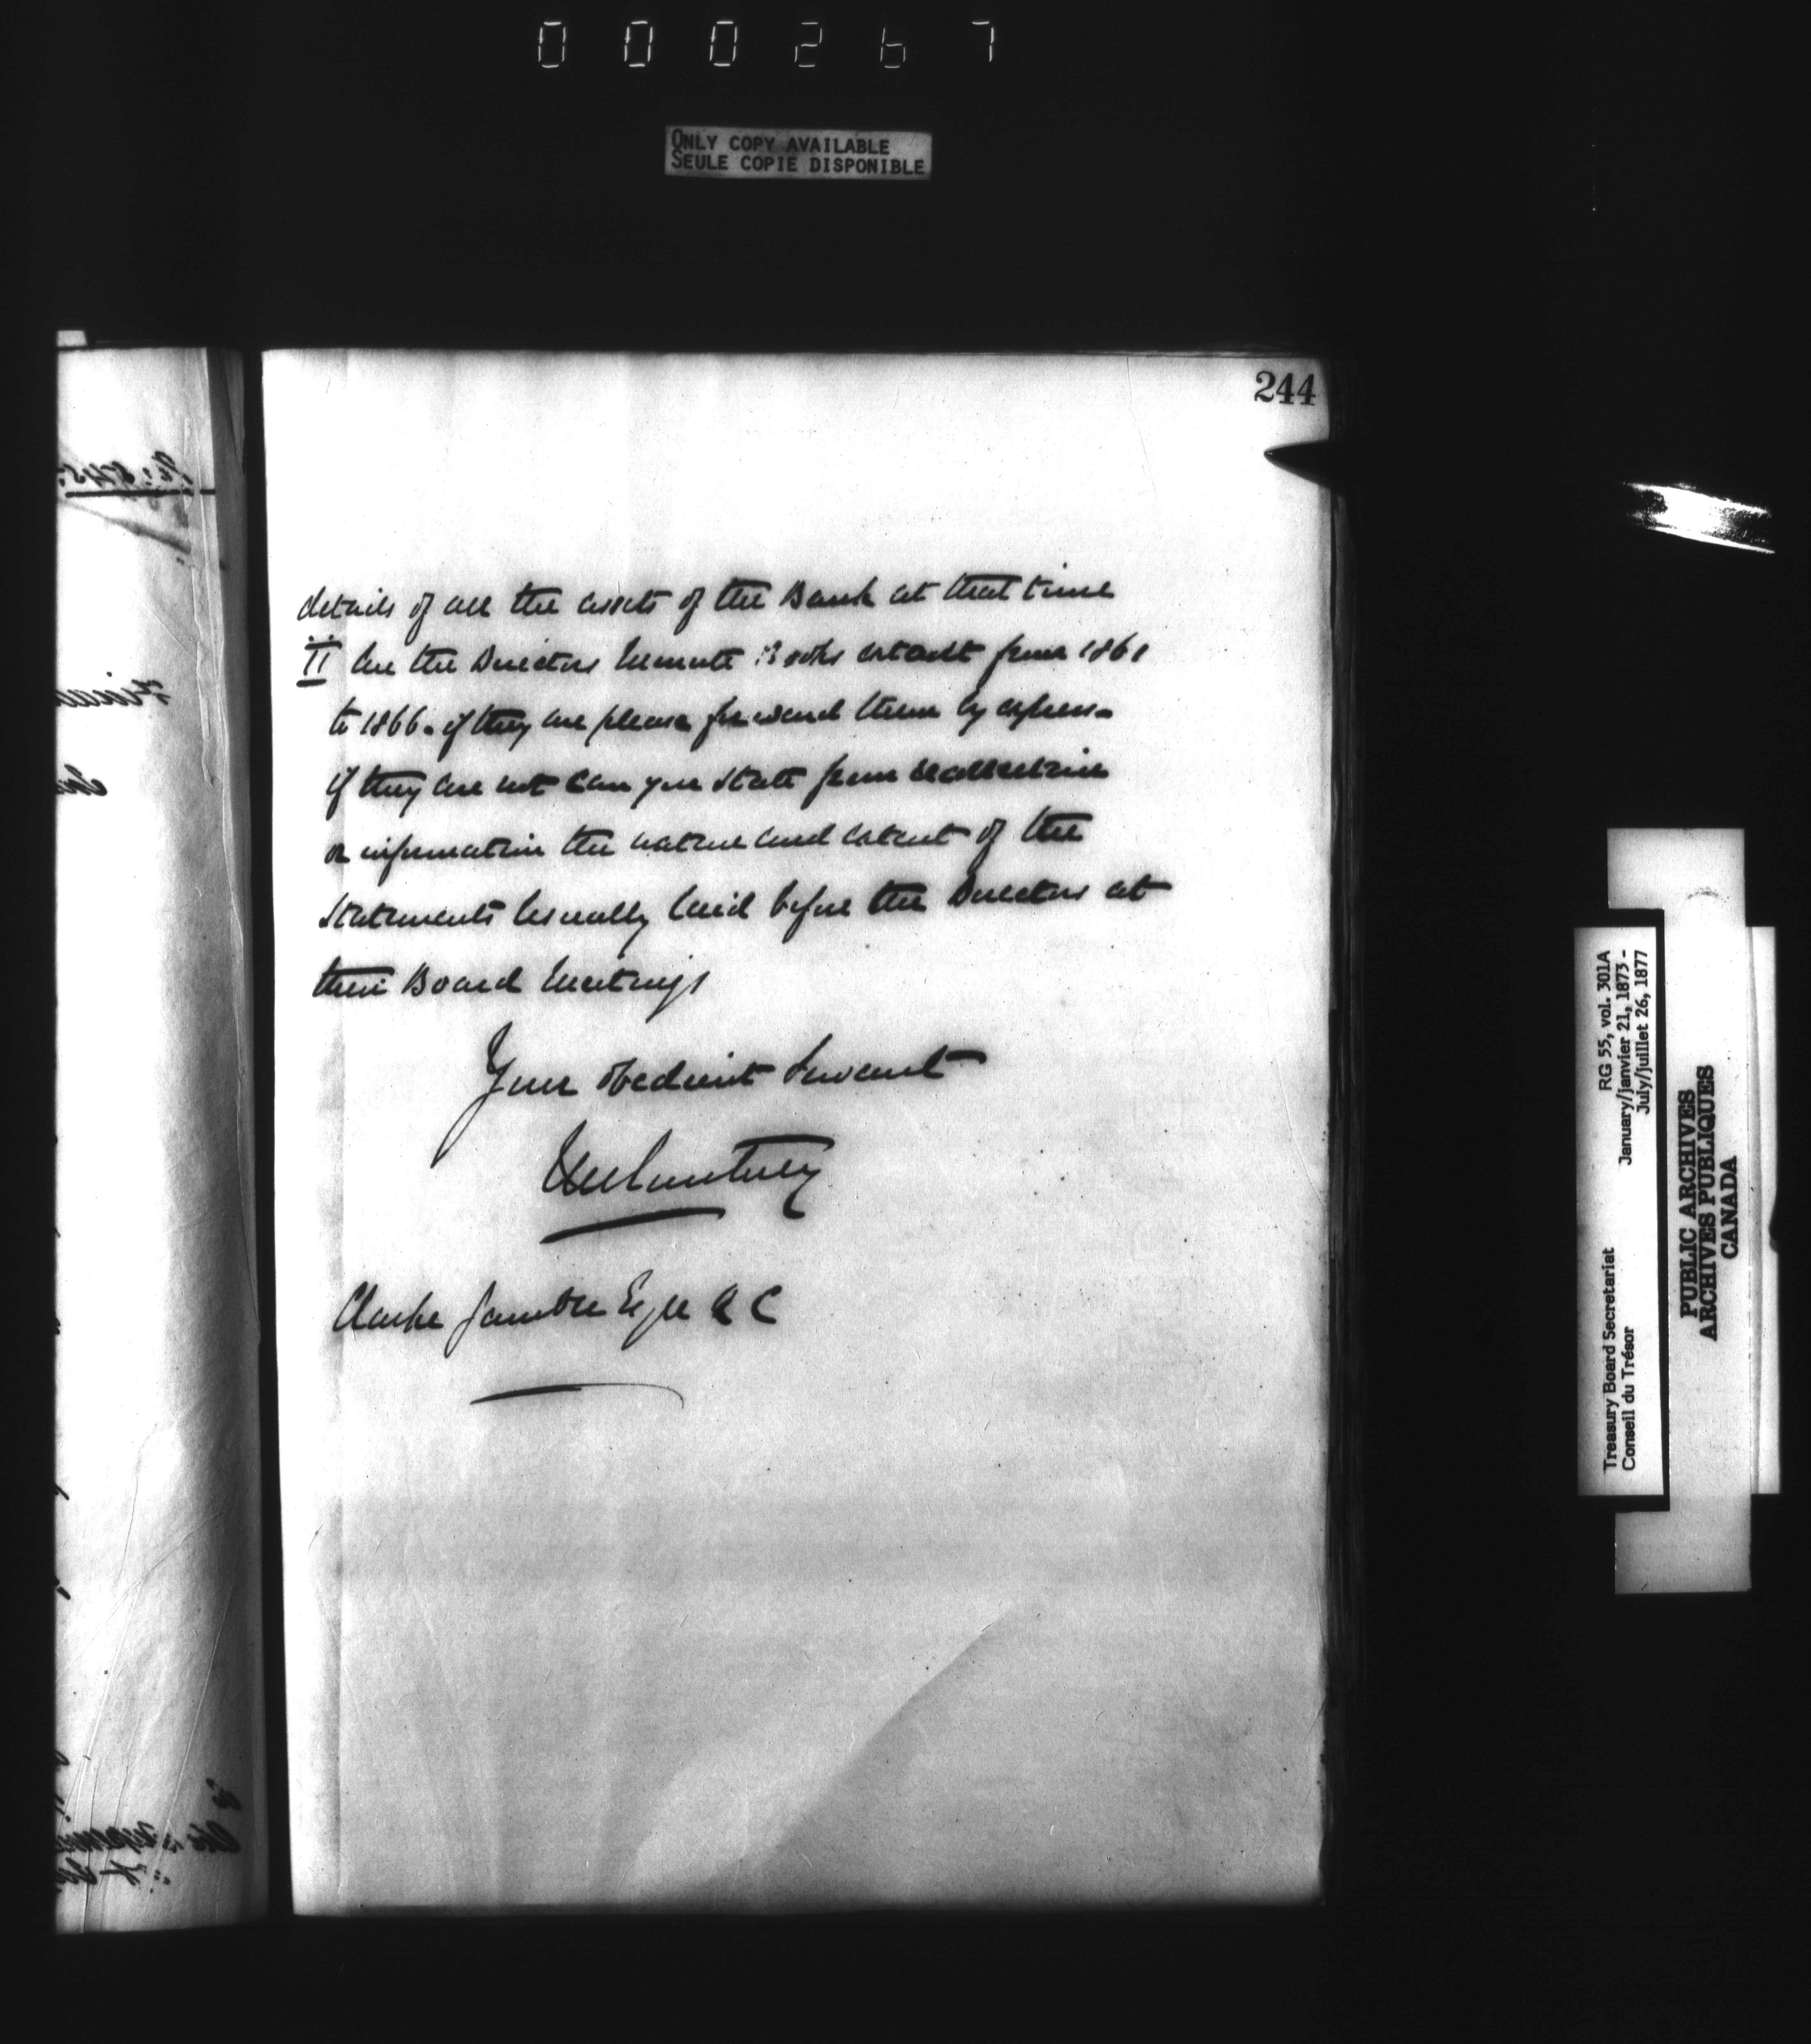 000267
ONLY COPY AVAILABLE
SEULE COPIE DISPONIBLE
244
details of all the assets of the Bank at that time
II Are the Directors Minute Books extant from 1861
to 1866. if they are please forward them by express.
if they are not can you state from recollection
or information the nature and extent of the
Statements usually laid before the Directors at
their Board Meetings
Your obedient Servant
Courtney
Clarke Gamble Esqre Q C
RG 55, vol. 301A
January/janvier 21, 1873 -
July/juillet 26, 1877
Treasury Board Secretariat
Conseil du Trésor
PUBLIC ARCHIVES
ARCHIVES PUBLIQUES
CANADA